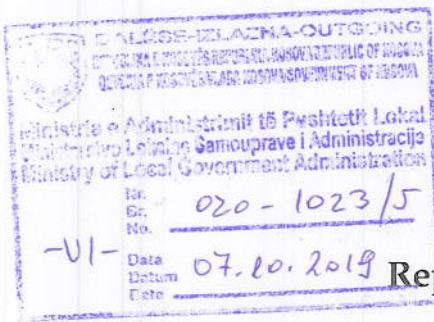 DALËSE-IZLAZNA-OUTGOING
REPUBLIKA E KOSOVËS/REPUBLIKA KOSOVA/REPUBLIC OF KOSOVA
QEVERIA E KOSOVËS/VLADA KOSOVA/GOVERNMENT OF KOSOVA
Ministria e Administrimit të Pushtetit Lokal
Ministarstvo Lokalne Samouprave i Administracije
Ministry of Local Government Administration
Nr.
Br.
No.
020-1023/5
-VI-
Data
Datum
Date
07.10.2019
Rep